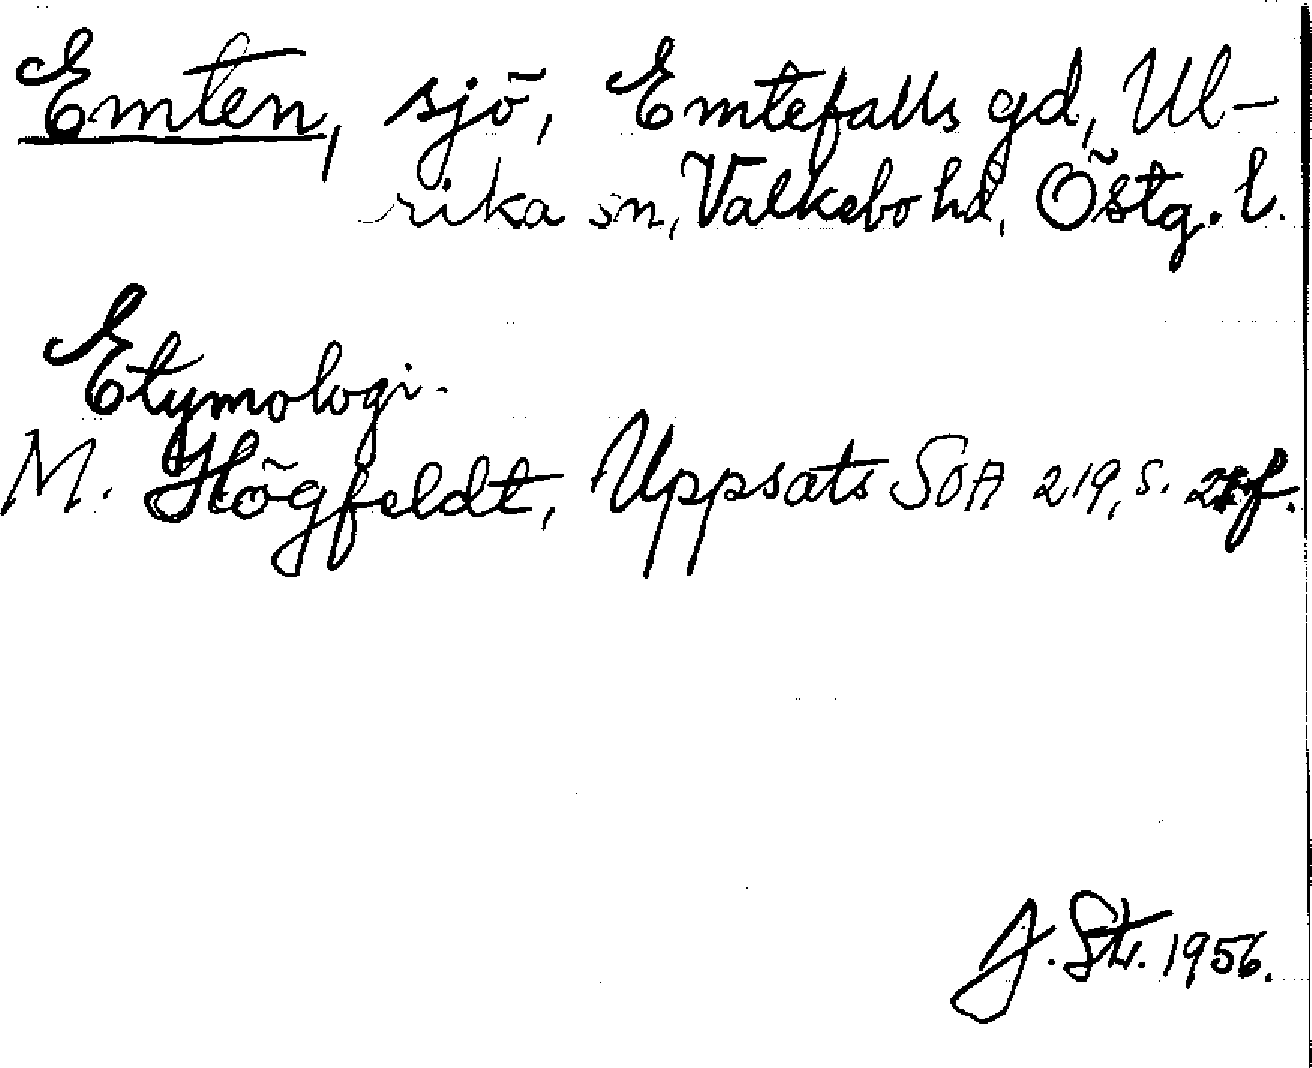 Emten, sjö, Emtefalls gd, Ul-
rika sn, Valkebo hd, Östg. l.
Etymologi.
M. Högfeldt, Uppsats SOA 219, s.
J. Str. 1956.